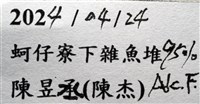 2024/04/24
蚵仔寮下雜魚堆95%
陳昱丞(陳杰) Alc.F.